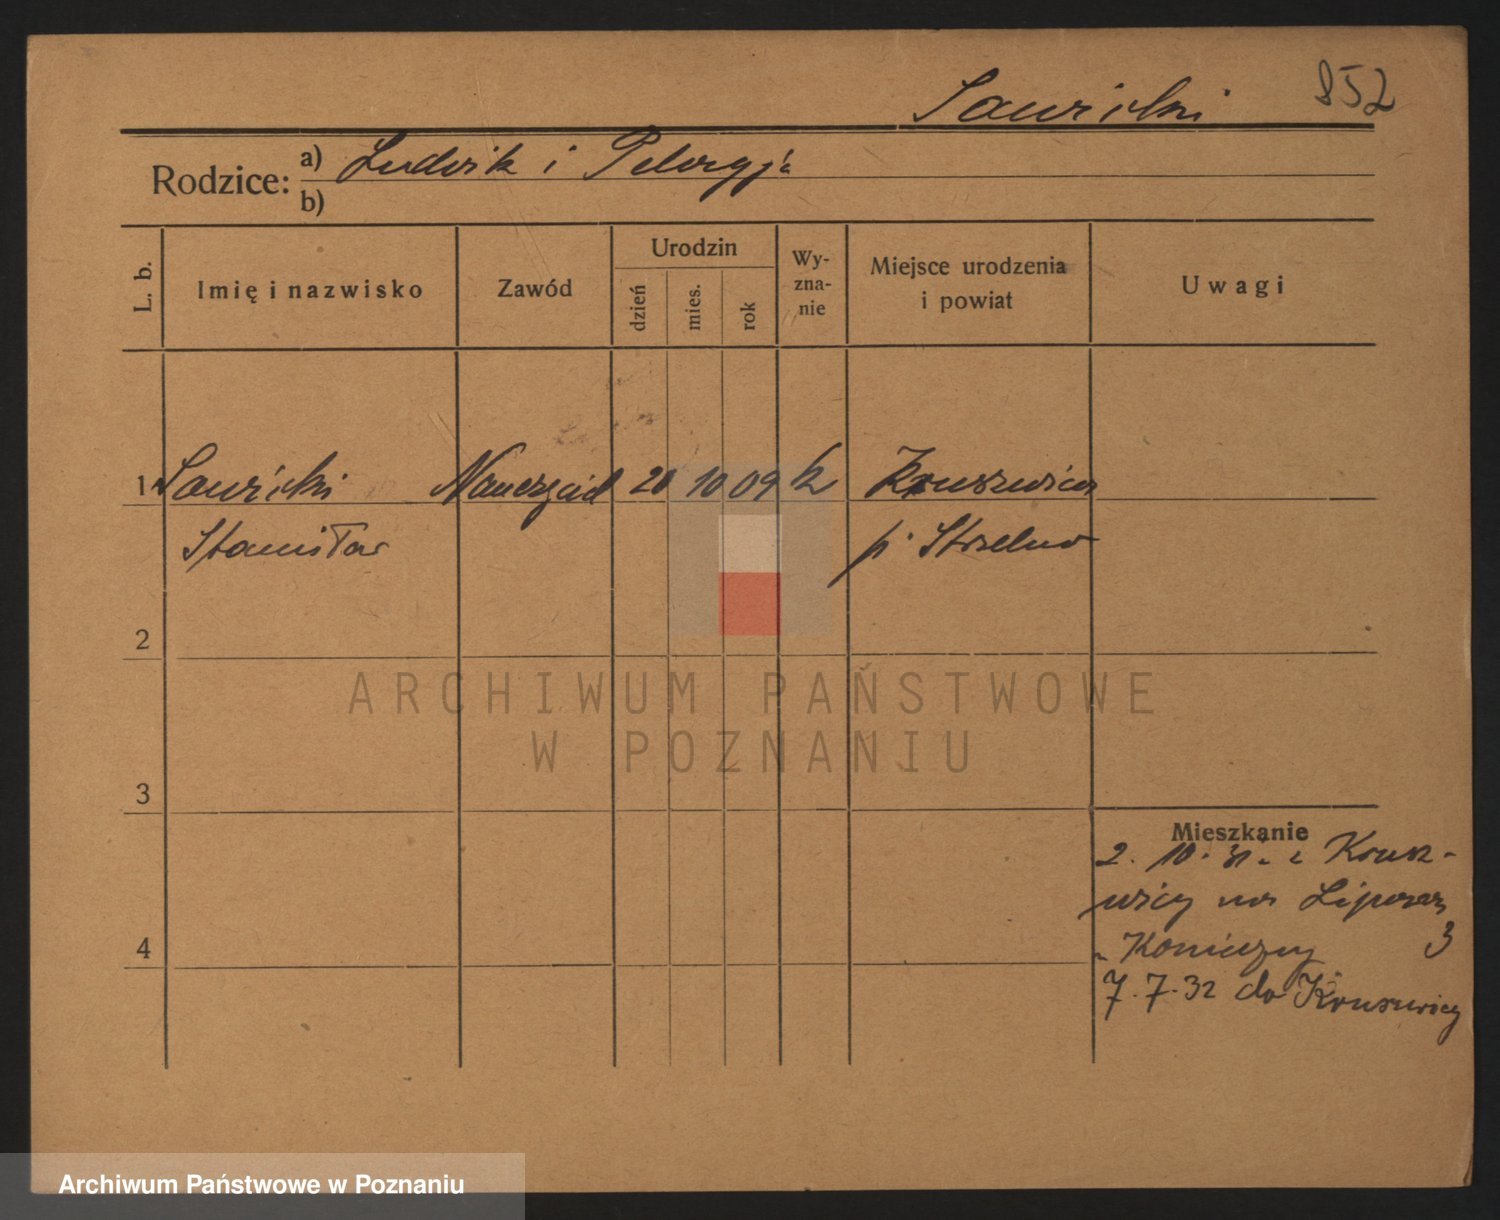 Sawicki 852
Rodzice: a) Ludwik i Pelagja
b)
L. b. Imię i nazwisko Zawód Urodzin dzień mies. rok Wy-zna-nie Miejsce urodzenia i powiat Uwagi
1 Sawicki Nauczyciel 20 10 09 k Kruszwica
Stanisław p. Strzelno
2
ARCHIWUM PAŃSTWOWE
W POZNANIU
3
Mieszkanie
2. 10. 31. z Krusz-
wicy na
4 3
7.7.32 do Kruszwicy
Archiwum Państwowe w Poznaniu